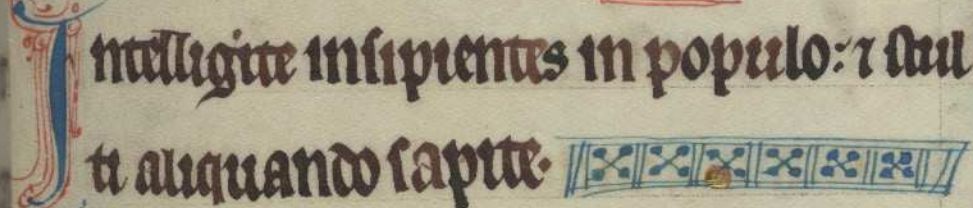 Intelligite insipientes in populo: ⁊ stul
ti aliquando sapite.